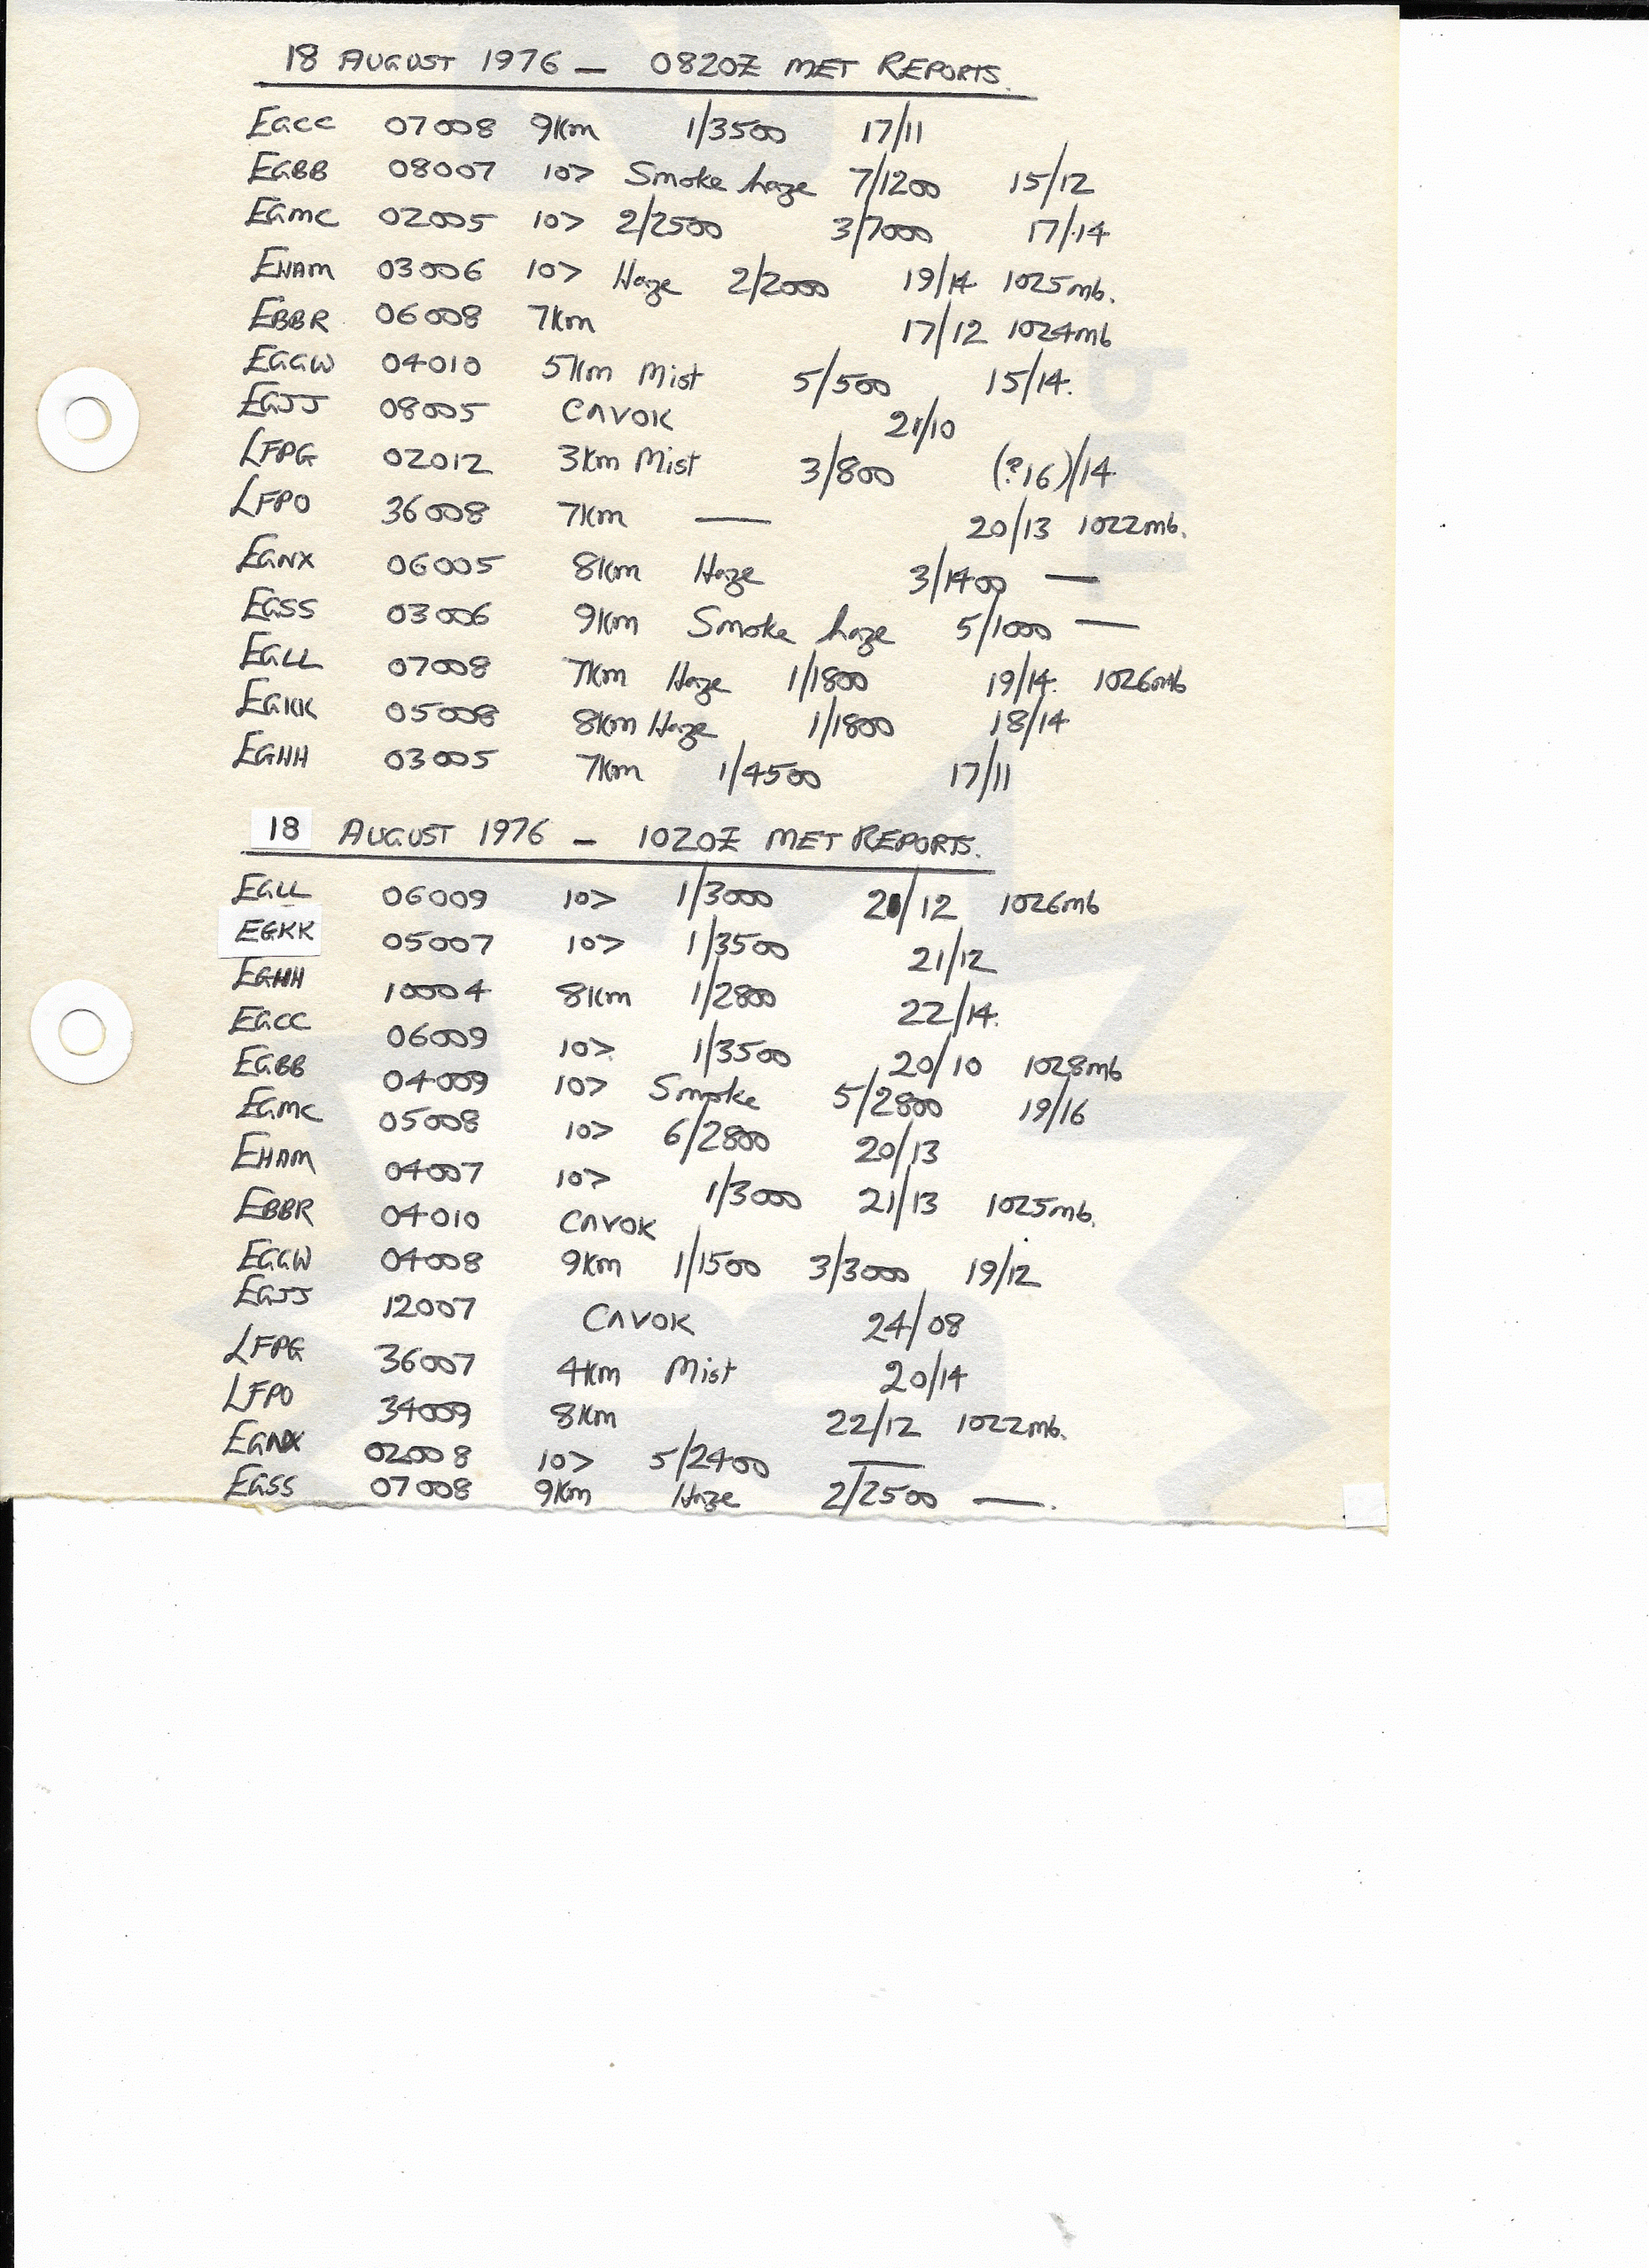 18 AUGUST 1976 – 0820Z MET REPORTS.
EGCC 07008 9Km 1/3500 17/11
EGBB 08007 10> Smoke haze 7/1200 15/12
EGMC 02005 10> 2/2500 3/7000 17/14
EHAM 03006 10> Haze 2/2000 19/14 1025mb.
EBBR 06008 7Km 17/12 1024mb
EGGW 04010 5Km Mist 5/500 15/14.
EGJJ 08005 CAVOK 21/10
LFPG 02012 3Km Mist 3/800 (?16)/14
LFPO 36008 7Km — 20/13 1022mb.
EGNX 06005 8Km Haze 3/1400 —
EGSS 03006 9Km Smoke haze 5/1000 —
EGLL 07008 7Km Haze 1/1800 19/14. 1026mb
EGKK 05008 8Km Haze 1/1800 18/14
EGHH 03005 7Km 1/4500 17/11
18 AUGUST 1976 – 1020Z MET REPORTS.
EGLL 06009 10> 1/3000 1026mb
EGKK 05007 10> 1/3500 21/12
EGHH 10004 8Km 1/2800 22/14.
EGCC 06009 10> 1/3500 20/10 1028mb
EGBB 04009 10> Smoke 5/2800 19/16
EGMC 05008 10> 6/2800 20/13
EHAM 04007 10> 1/3000 21/13 1025mb.
EBBR 04010 CAVOK
EGGW 04008 9Km 1/1500 3/3000 19/12
EGJJ 12007 CAVOK 24/08
LFPG 36007 4Km Mist 20/14
LFPO 34009 8Km 22/12 1022mb.
EGNX 02008 10> 5/2400 —
EGSS 07008 9Km Haze 2/2500 —.